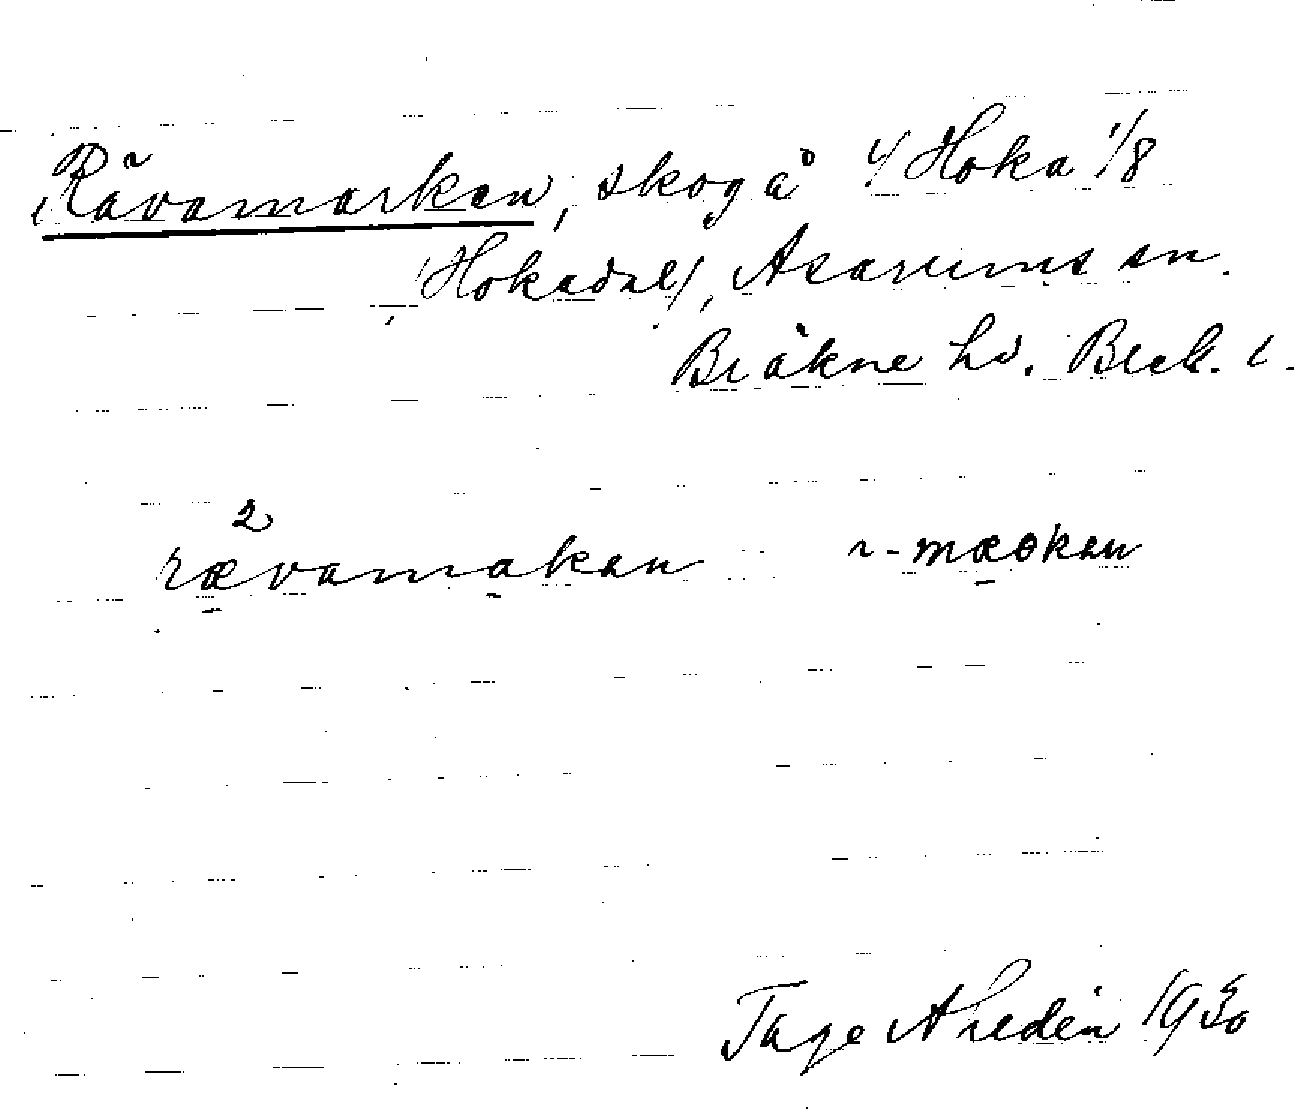 Rävamarken, skog å 4/ Hoka 1/8
(Hokadal), Asarums sn.
Bräkne hd. Blek. l.
2
rævamakan r-mæokan
Tage Ahldén 1930